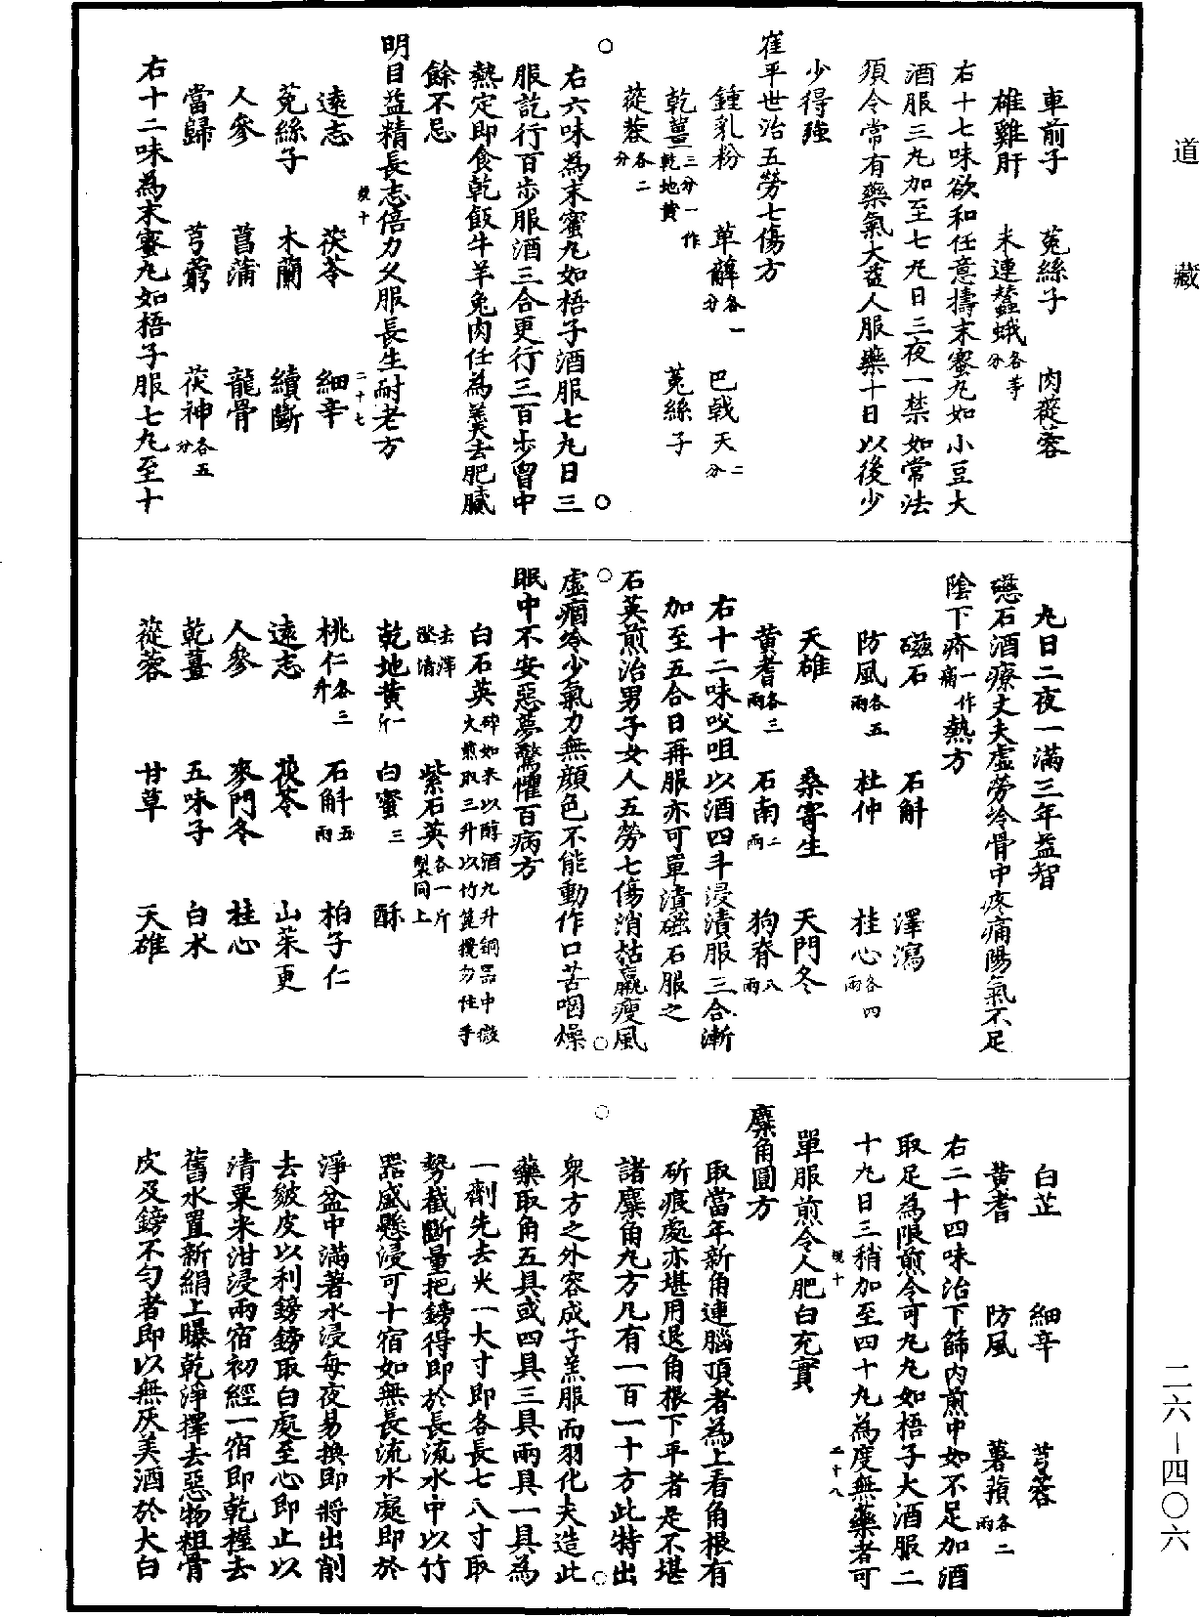 道藏
車前子　菟絲子　肉蓯蓉
雄雞肝　未連蠶蛾各等分
右十七味欲和任意擣末蜜丸如小豆大
酒服三丸加至七丸日三夜一禁如常法
須令常有藥氣大益人服藥十日以後少
少得強
崔平世治五勞七傷方
鍾乳粉　萆薢各一分　巴戟天二分
乾薑三分一作乾地黃　菟絲子
蓯蓉各二分
右六味為末蜜丸如梧子酒服七丸日三
服訖行百步服酒三合更行三百步胷中
熱定即食乾飯牛羊兔肉任為羹去肥膩
餘不忌
明目益精長志倍力久服長生耐老方
遠志　茯苓　細辛
菟絲子　木蘭　續斷
人參　菖蒲　龍骨
當歸　芎藭　茯神各五分
右十二味為末蜜丸如梧子服七丸至十
競十
二十七
丸日二夜一滿三年益智
礠石酒療丈夫虛勞冷骨中疼痛陽氣不足
陰下痒一作痛熱方
磁石　石斛　澤瀉
防風各五兩　杜仲　桂心各四兩
天雄　桑寄生　天門冬
黃耆各三兩　石南二兩　狗脊八兩
右十二味㕮咀以酒四斗浸漬服三合漸
加至五合日再服亦可單漬磁石服之
石英煎治男子女人五勞七傷消枯羸瘦風
虛痼冷少氣力無顏色不能動作口苦咽燥
眠中不安惡夢驚懼百病方
白石英碎如米以醇酒九升銅器中微火煎取三升以竹篦攪勿住手去滓澄清　紫石英各一斤製同上
乾地黃一斤　白蜜　酥
桃仁各三升　石斛五兩　柏子仁
遠志　茯苓　山茱更
人參　麥門冬　桂心
乾薑　五味子　白朮
蓯蓉　甘草　天雄
白芷　細辛　芎藭
黃耆　防風　薯蕷各二兩
右二十四味治下篩內煎中如不足加酒
取足為限煎令可丸丸如梧子大酒服二
十丸日三稍加至四十丸為度無藥者可
單服煎令人肥白充實
競十
二十八
麋角圓方
取當年新角連腦頂者為上看角根有
斫痕處亦堪用退角根下平者是不堪
諸麋角丸方凡有一百一十方此特出
衆方之外容成子羔服而羽化夫造此
藥取角五具或四具三具兩具一具為
一劑先去尖一大寸即各長七八寸取
勢截斷量把鎊得即於長流水中以竹
器盛懸浸可十宿如無長流水處即於
淨盆中滿著水浸每夜易換即將出削
去皴皮以利鎊鎊取白處至心即止以
清粟米泔浸兩宿初經一宿即乾握去
舊水置新絹上曝乾淨擇去惡物粗骨
皮及鎊不勻者即以無灰美酒於大白
二六—四〇六